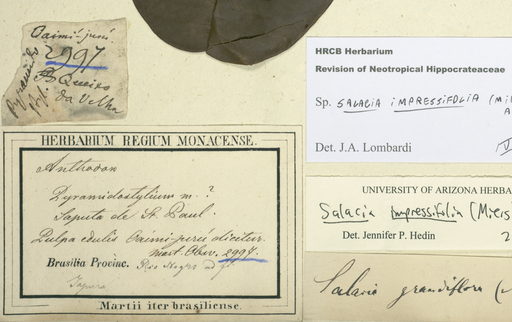 Caimi-purú
2997
HERBARIUM REGIUM MONACENSE.
Anthodon
Pyramidostylium m. ?
Saputa de S. Paul.
Pulpa edulis Caimi purú dicitur.
Mart. Obs. 2997.
Brasiliæ Provinc. Rio Negro ad
Japura
Martii iter brasiliense.
HRCB Herbarium
Revision of Neotropical Hippocrateaceae
Sp. SALACIA IMPRESSIFOLIA (Mi
Det. J.A. Lombardi
UNIVERSITY OF ARIZONA HERBA
Salacia impressifolia (Miers)
Det. Jennifer P. Hedin 2
Salacia grandiflora